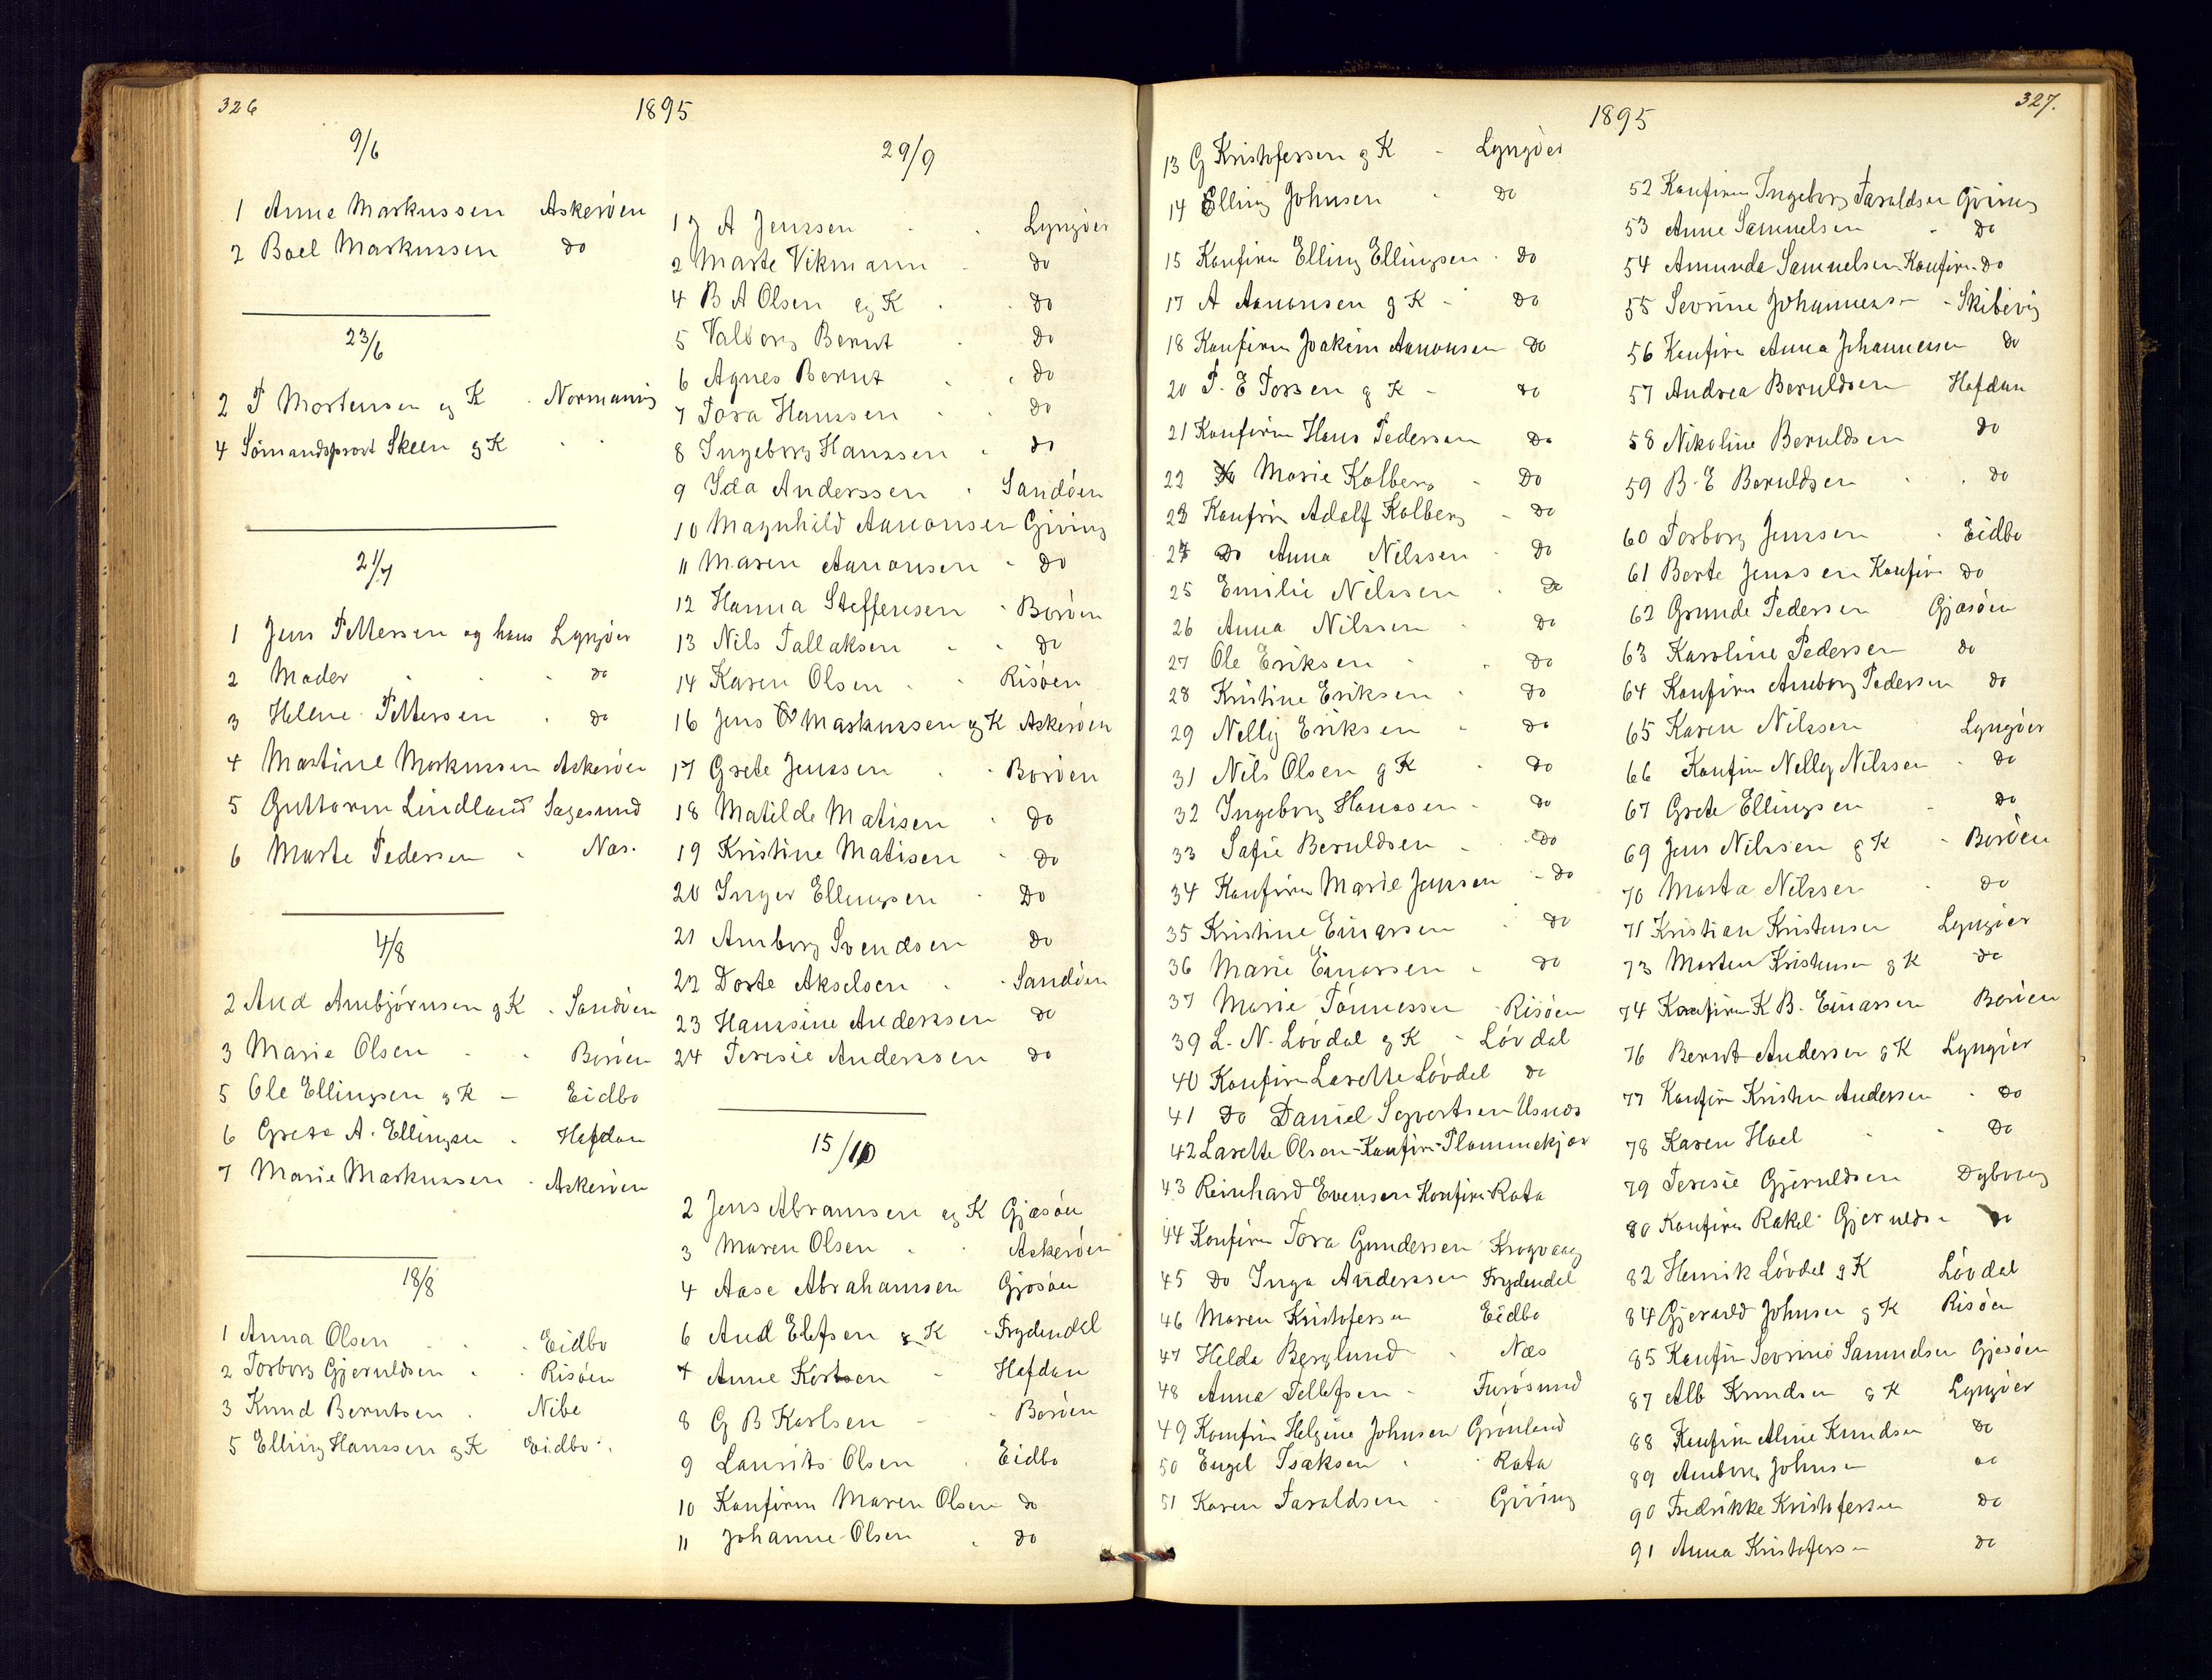 326
1895
9/6
1 Anne Markussen Askerøen
2 Boel Markussen do
23/6
2 T Mortensen og K - Normannvig
4 Sømandsprovst Skeen og K - -
21/7
1 Jens Pettersen og hans Lyngøer
2 Moder - - - do
3 Helene Pettersen - do
4 Martine Markussen Askerøen
5 Guttorm Lindland Sagesund
6 Marte Pedersen - Næs.
4/8
2 And Arnbjørnsen og K - Sandøen
3 Marie Olsen - - Borøen
5 Ole Ellingsen og K - Eidbo
6 Grete A. Ellingsen - Hafdan
7 Marie Markussen - Askerøen
18/8
1 Anna Olsen - - - Eidbo
2 Torborg Gjeruldsen - - Risøen
3 Knud Berntsen - Nibe
5 Elling Hanssen og K Eidbo
29/9
1 J A Jenssen - - Lyngøer
2 Marte Vikmann - do
4 B A Olsen og K - - do
5 Valborg Bernt - do
6 Agnes Bernt - - do
7 Tora Hanssen - - do
8 Ingeborg Hanssen - do
9 Ida Anderssen - Sandøen
10 Magnhild Aanonsen Giving
11 Maren Aanonsen - do
12 Hanna Steffensen - Borøen
13 Nils Tallaksen - - do
14 Karen Olsen - - Risøen
16 Jens O Markussen og K Askerøen
17 Grete Jenssen - - Borøen
18 Matilde Matisen - do
19 Kristine Matisen - do
20 Inger Ellingsen - Do
21 Arnborg Svendsen do
22 Dorte Akselsen - - Sandøen
23 Hanssine Anderssen do
24 Teresie Anderssen do
15/10
2 Jens Abramsen og K Gjæsøen
3 Maren Olsen - - Askerøen
4 Aase Abrahamsen Gjæsøen
6 And Elefsen og K - Frydendal
7 Anne Kortsen - Hafdan
8 G B Karlsen - - Borøen
9 Laurits Olsen - Eidbo
10 Konfirm Maren Olsen do
11 Johanne Olsen - do
327.
1895
13 G Kristofersen og K - Lyngøer
14 Elling Johnsen - do
15 Konfirm Elling Ellingsen - do
17 A Aanonsen og K - do
18 Konfirm Joakim Aanonsen do
20 P. E Torssen og K - do
21 Konfirm Hans Pedersen do
22 Marie Kolberg - Do
23 Konfirm Adolf Kolberg - do
24 do Anna Nilssen - do
25 Emilie Nilssen - do
26 Anna Nilssen - do
27 Ole Eriksen - - do
28 Kristine Eriksen - do
29 Nelly Eriksen - do
31 Nils Olsen og K - do
32 Ingeborg Hanssen - do
33 Sofie Beruldsen - - do
34 Konfirm Marie Jenssen - do
35 Kristine Einarsen - do
36 Marie Einarsen - do
37 Marie Tønnessen - Risøen
39 L. N. Løvdal og K - Løvdal
40 Konfirm Lasette Løvdal do
41 Do Daniel Syvertsen Usnæs
42 Lasette Olsen - Konfirm - Plommekjær
43 Reinhard Evensen Konfirm - Rota
44 Konfirm Tora Gundersen Krogvaag
45 Do Inga Anderssen Frydendal
46 Maren Kristofersen Eidbo
47 Helda Berglund - - Næs
48 Anna Tellefsen - Furøsund
49 Konfirm Helgine Johnsen Grønland
50 Engel Isaksen - - Rota
51 Karen Taraldsen - Giving
52 Konfirm Ingeborg Taraldsen Giving
53 Anne Samuelsen - do
54 Amunda Samuelsen Konfirm - do
55 Sevrine Johannessen - Skibevig
56 Konfirm Anna Johannessen do
57 Andrea Beruldsen Hafdan
58 Nikoline Beruldsen do
59 B. E Beruldsen - - do
60 Torborg Jenssen - Eidbo
61 Berte Jenssen Konfirm do
62 Grunde Pedersen Gjæsøen
63 Karoline Pedersen do
64 Konfirm Arneborg Pedersen do
65 Karen Nilssen Lyngøer
66 Konfirm Nelly Nilssen - do
67 Grete Ellingsen - do
69 Jens Nilssen og K - Borøen
70 Marta Nilssen - do
71 Kristian Kristensen Lyngøer
73 Morten Kristensen og K do
74 Konfirm K B. Einarsen Borøen
76 Bernt Andersen og K Lyngøer
77 Konfirm Kristen Andersen - do
78 Karen Hoel - - Do
79 Teresie Gjeruldsen Dybvaag
80 Konfirm Rakel Gjeruldsen do
82 Henrik Løvdal og K Løvdal
84 Gjeruld Johnsen og K Risøen
85 Konfirm Sevrine Samuelsen Gjæsøen
87 Alb Knudsen og K Lyngøer
88 Konfirm Aline Knudsen do
89 Arnborg Johnsen do
90 Fredrikke Kristofersen do
91 Anna Kristofersen do